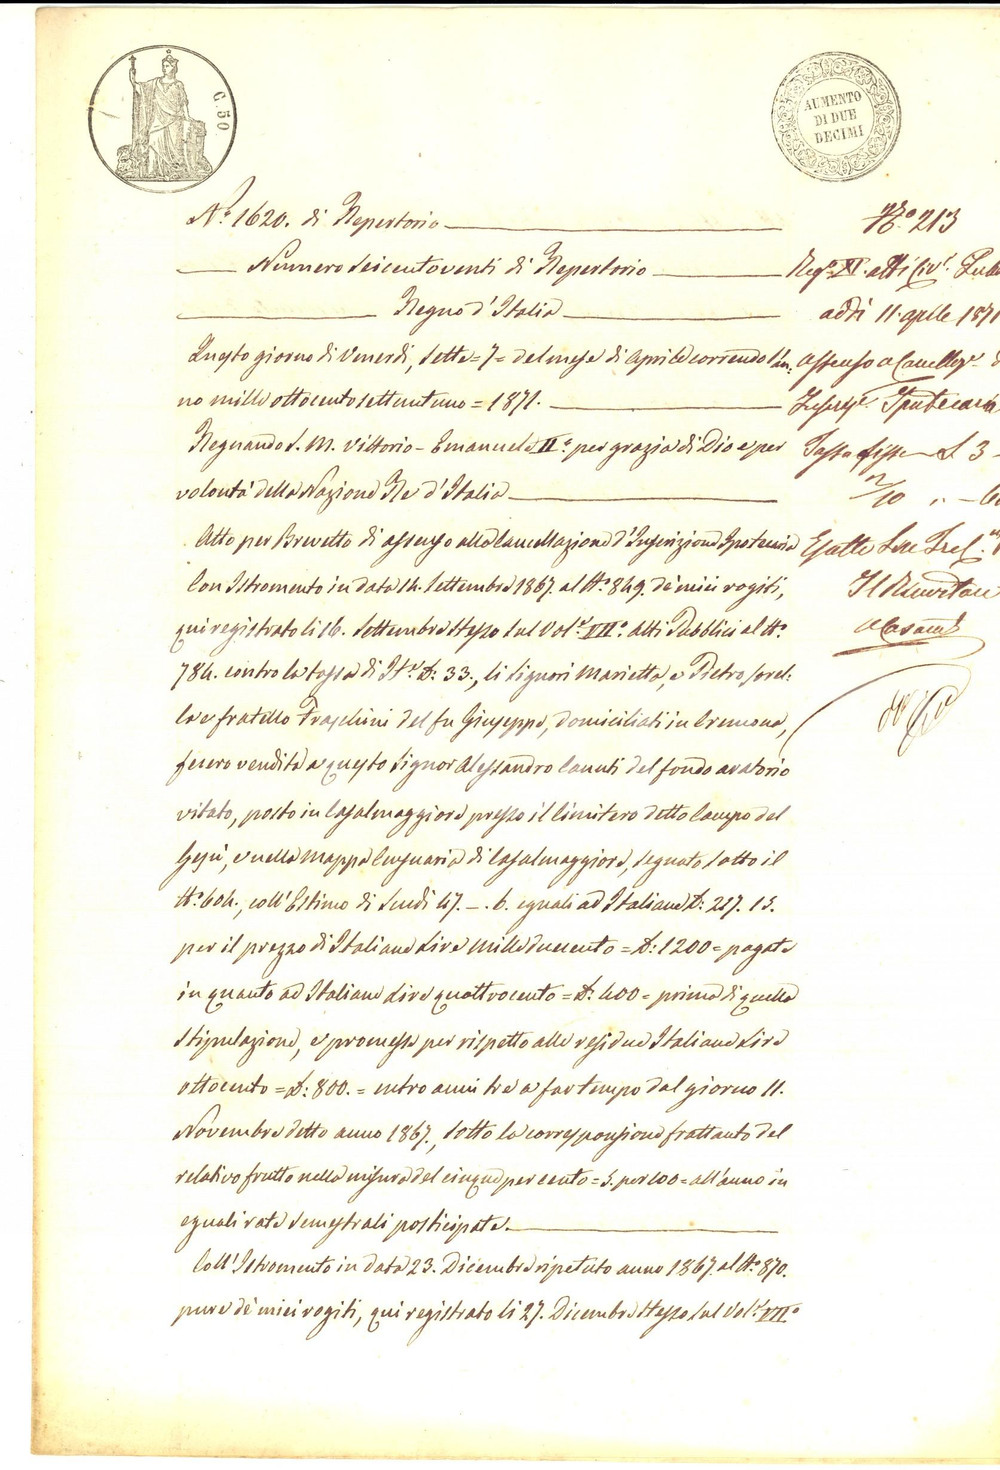 C. 50
AUMENTO
DI DUE
DECIMI
N.° 1620. di Repertorio
Numero Seicentoventi di Repertorio
Regno d'Italia
Questo giorno di Venerdì, sette = 7 = del mese di Aprile corrente l'an:
no mille ottocento settantuno = 1871.
Regnando S. M. Vittorio - Emanuele II.° per grazia di Dio e per
volontà della Nazione Re d'Italia
Atto per Brevetto di assenso alla Cancellazione d'Inscrizione Ipotecaria
Con Istromento in data 14. Settembre 1867. al N.° 849. de' miei rogiti,
qui registrato li 16. Settembre stesso sul Vol.e VII.° Atti Pubblici al N.°
784. contro la tassa di It.e £: 33., li Signori Marietta, e Pietro sorel:
la e fratello Fraschini del fu Giuseppe, domiciliati in Cremona,
fecero vendita a questo Signor Alessandro Canuti del fondo aratorio
vitato, posto in Casalmaggiore presso il Cimitero detto Campo del
Gesù, e nella Mappa Censuaria di Casalmaggiore, segnato sotto il
N.° 604., coll'Estimo di Scudi 47. _ . 6. eguali ad Italiane £: 217. 13.
per il prezzo di Italiane Lire Mille duecento = £: 1200 = pagate
in quanto ad Italiane Lire quattrocento = £: 400 = prima di quella
stipulazione, e promesse per rispetto alle residue Italiane Lire
ottocento = £: 800. = entro anni tre a far tempo dal giorno 11.
Novembre detto anno 1867., sotto la corresponsione frattanto del
relativo frutto nella misura del cinque per cento = 5. per 100 = all'anno in
eguali rate semestrali posticipate.
Coll'Istromento in data 23. Dicembre ripetuto anno 1867. al N.° 870.
pure de' miei rogiti, qui registrato li 27. Dicembre stesso sul Vol.e VII.°
N.° 213
Reg.° XI. atti Civ.i
addì 11. aprile 1871
assenso a Cancell.e
Ipotecaria
Tassa fissa £ 3 -
2/10
Esatte Lire
Il Ricevitore